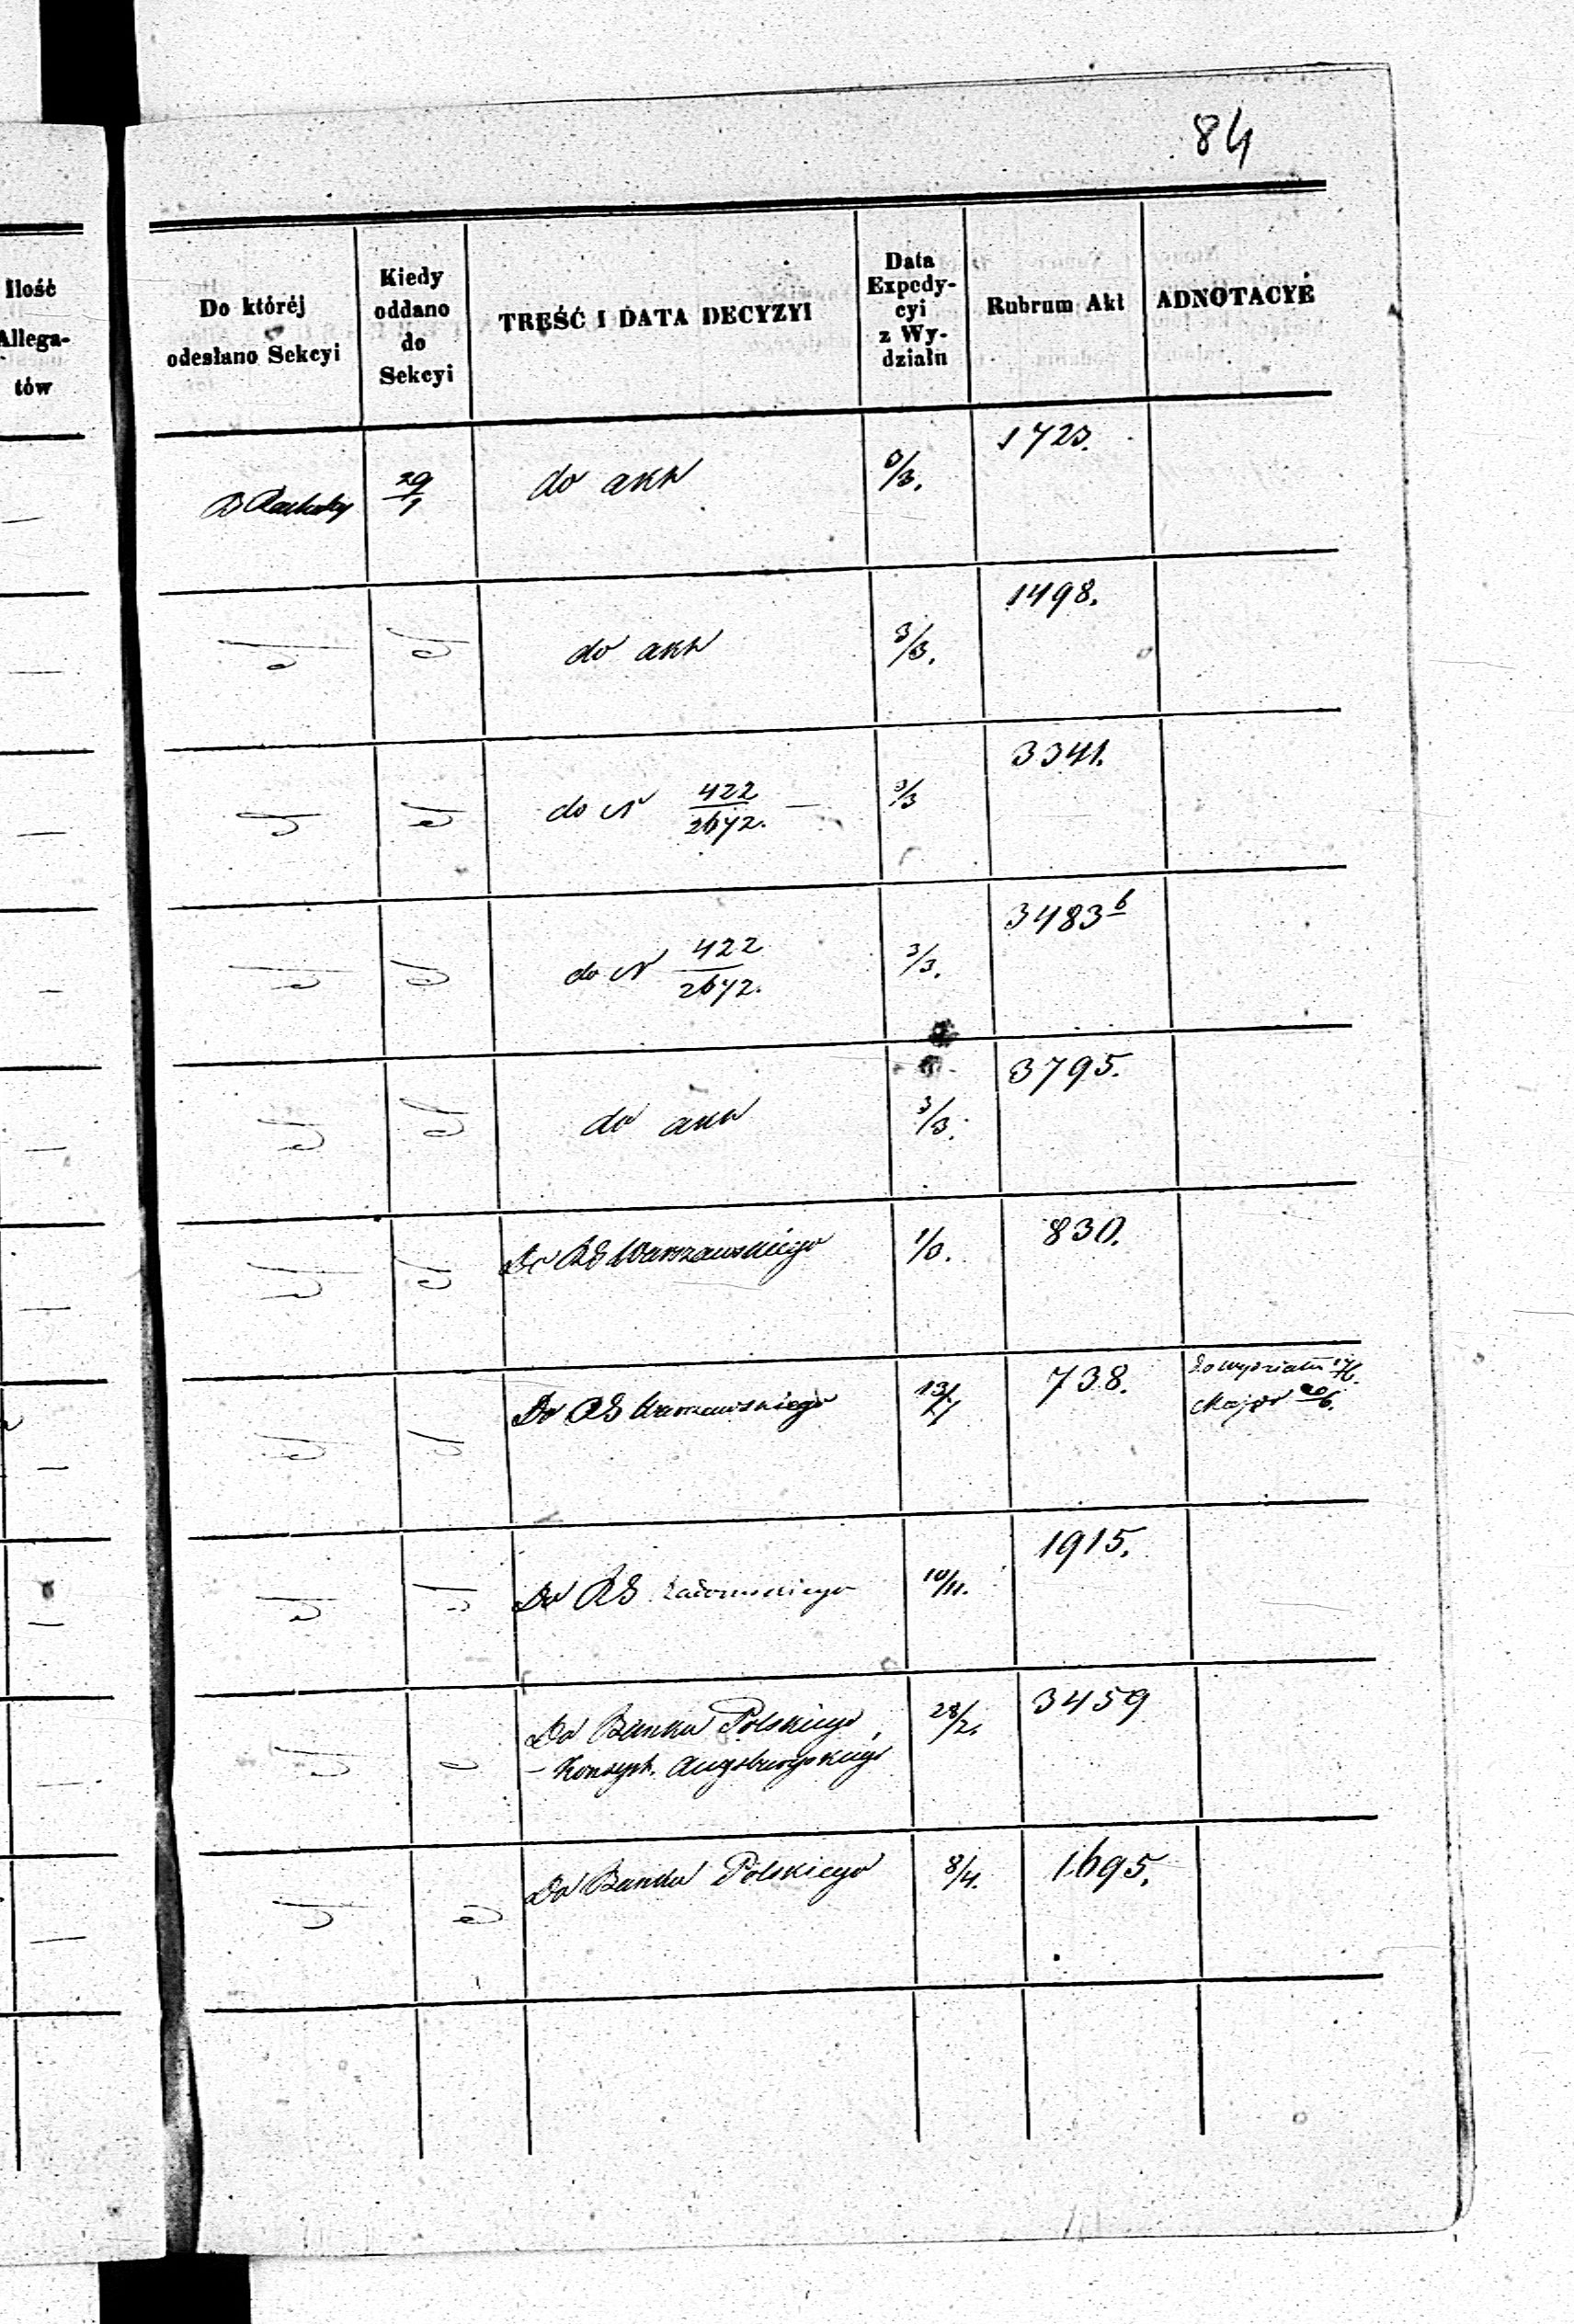 84
Ilość
Allega-
tów
Do któréj
odesłano Sekcyi
Kiedy
oddano
do
Sekcyi
TREŚĆ I DATA DECYZYI
Data
Expedy-
cyi
z Wy-
działu
Rubrum Akt
ADNOTACYE
29/1
do akt
3/3.
1723.
do akt
3/3.
1498.
do N 422/2672. —
3/3
3341.
do N 422/2672.
3/3.
3483 b
do akt
3/3.
3795.
Do RG Warszawskiego
1/3.
830.
Do RG Warszawskiego
738.
do wydziału
Major
Do RG Radomskiego
10/11.
1915.
Do Banku Polskiego
28/2.
3459
— Konsyst. Augsburgskiego
Do Banku Polskiego
8/4.
1695.